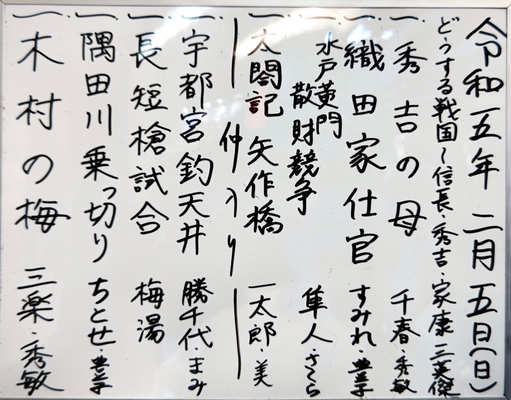 令和五年 二月五日(日)
どうする戦国~信長・秀吉・家康 三英傑
一 秀吉の母 千春・秀敏
一 織田家仕官 すみれ・豊子
一 水戸黄門
散財競争 隼人・さくら
一 太閤記 矢作橋 一太郎・美
仲入り
一 宇都宮釣天井 勝千代・まみ
一 長短槍試合 梅湯
一 隅田川乗っ切り ちとせ・豊子
一 木村の梅 三楽・秀敏